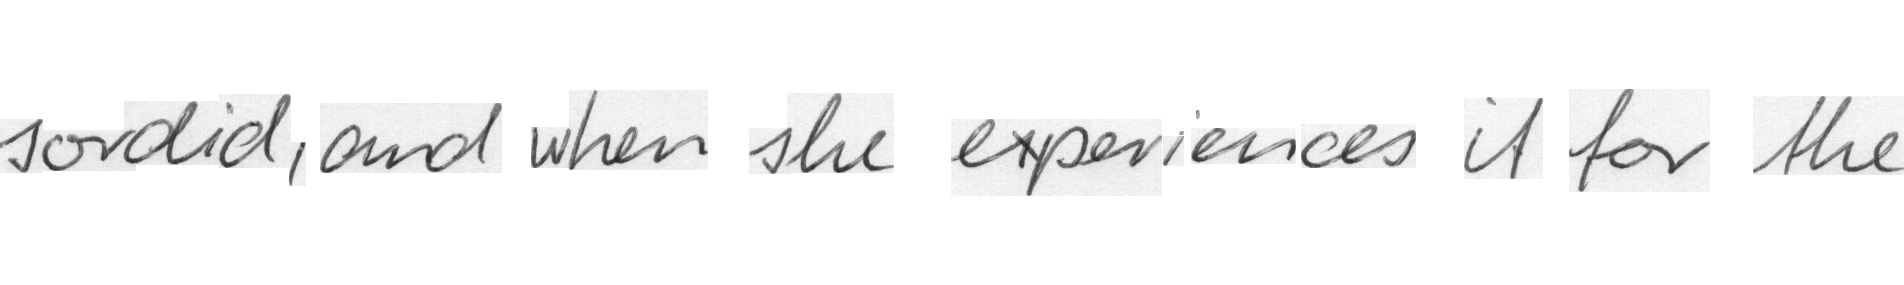 sordid, and when she experiences it for the